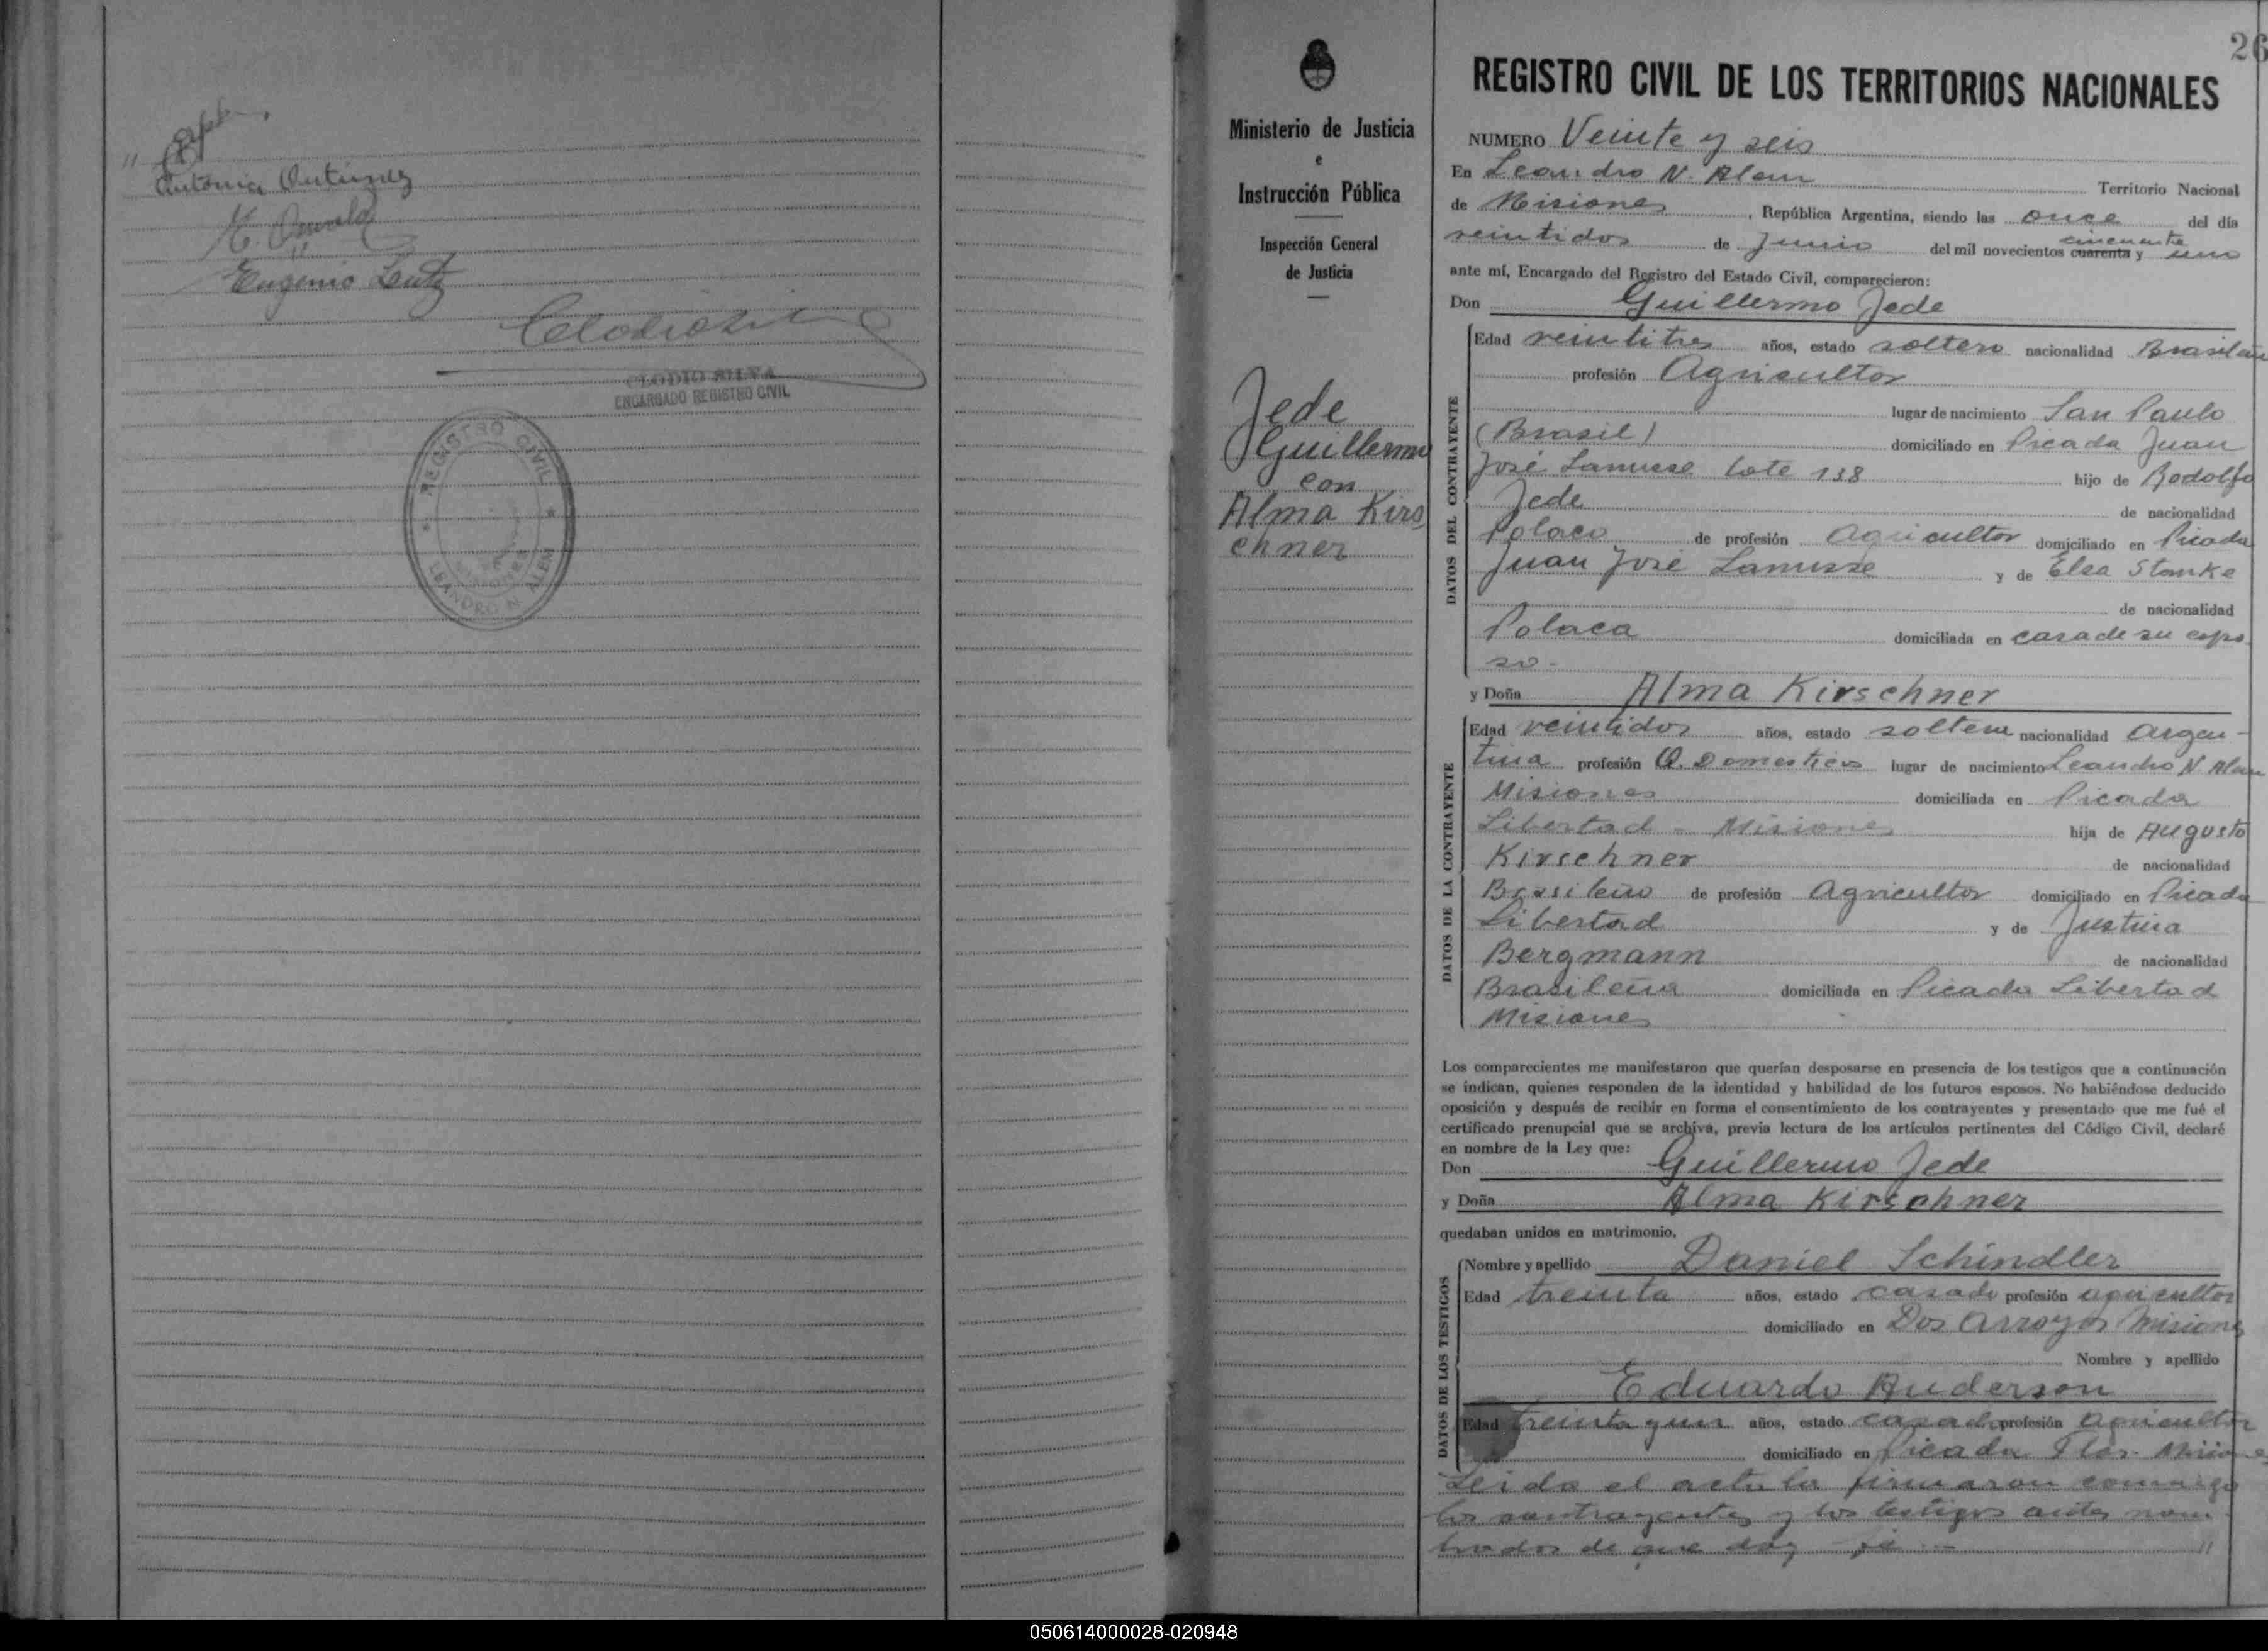 Antonia Gutierrez
E. Oswald
Eugenio Lutz
CLODIO SILVA
ENCARGADO REGISTRO CIVIL
REGISTRO CIVIL
MISIONES
LEANDRO N. ALEM
Ministerio de Justicia
e
Instrucción Pública
Inspección General
de Justicia
Jede
Guillermo
con
Alma Kirs
chner
26
REGISTRO CIVIL DE LOS TERRITORIOS NACIONALES
NUMERO Veinte y seis
En Leandro N. Alem Territorio Nacional
de Misiones, República Argentina, siendo las once del día
veintidos de Junio del mil novecientos cuarenta cincuenta y uno
ante mí, Encargado del Registro del Estado Civil, comparecieron:
Don Guillermo Jede
DATOS DEL CONTRAYENTE
Edad veintitres años, estado soltero nacionalidad Brasileña
profesión Agricultor
lugar de nacimiento San Paulo
(Brasil) domiciliado en Picada Juan
José Lanusse lote 138 hijo de Rodolfo
Jede de nacionalidad
Polaco de profesión Agricultor domiciliado en Picada
Juan José Lanusse y de Elsa Stanke
de nacionalidad
Polaca domiciliada en casa de su espo
so -
y Doña Alma Kirschner
DATOS DE LA CONTRAYENTE
Edad veintidos años, estado soltera nacionalidad Argen-
tina profesión Q. Domesticos lugar de nacimiento Leandro N. Alem
Misiones domiciliada en Picada
Libertad - Misiones hija de Augusto
Kirschner de nacionalidad
Brasileño de profesión Agricultor domiciliado en Picada
Libertad y de Justina
Bergmann de nacionalidad
Brasileña domiciliada en Picada Libertad
Misiones
Los comparecientes me manifestaron que querían desposarse en presencia de los testigos que a continuación
se indican, quienes responden de la identidad y habilidad de los futuros esposos. No habiéndose deducido
oposición y después de recibir en forma el consentimiento de los contrayentes y presentado que me fué el
certificado prenupcial que se archiva, previa lectura de los artículos pertinentes del Código Civil, declaré
en nombre de la Ley que:
Don Guillermo Jede
y Doña Alma Kirschner
quedaban unidos en matrimonio.
DATOS DE LOS TESTIGOS
Nombre y apellido Daniel Schindler
Edad treinta años, estado casado profesión agricultor
domiciliado en Dos Arroyos Misiones
Nombre y apellido
Eduardo Anderson
Edad treinta y un años, estado casado profesión Agricultor
domiciliado en Picada Flor - Misiones
Leida el acta la firmaron conmigo
los contrayentes y los testigos antes nom
brados de que doy fé. - "
050614000028-020948